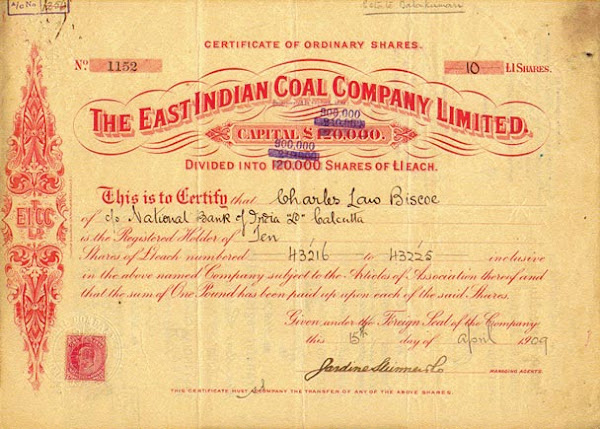 A/c No 1304
CERTIFICATE OF ORDINARY SHARES.
No. 1152
10 £1 SHARES.
THE EAST INDIAN COAL COMPANY LIMITED.
900,000
CAPITAL £ 120,000.
900,000
DIVIDED INTO 120,000 SHARES OF £1 EACH.
This is to Certify that Charles Law Biscoe
of c/o National Bank of India Ld Calcutta
is the Registered Holder of Ten
Shares of £1 each numbered 43216 to 43225 inclusive
in the above named Company subject to the Articles of Association thereof and
that the sum of One Pound has been paid up upon each of the said Shares.
Given under the Foreign Seal of the Company
this 15th day of April 1909
Jardine Skinner & Co
MANAGING AGENTS.
THIS CERTIFICATE MUST ACCOMPANY THE TRANSFER OF ANY OF THE ABOVE SHARES.
E.I.C.C.
LD